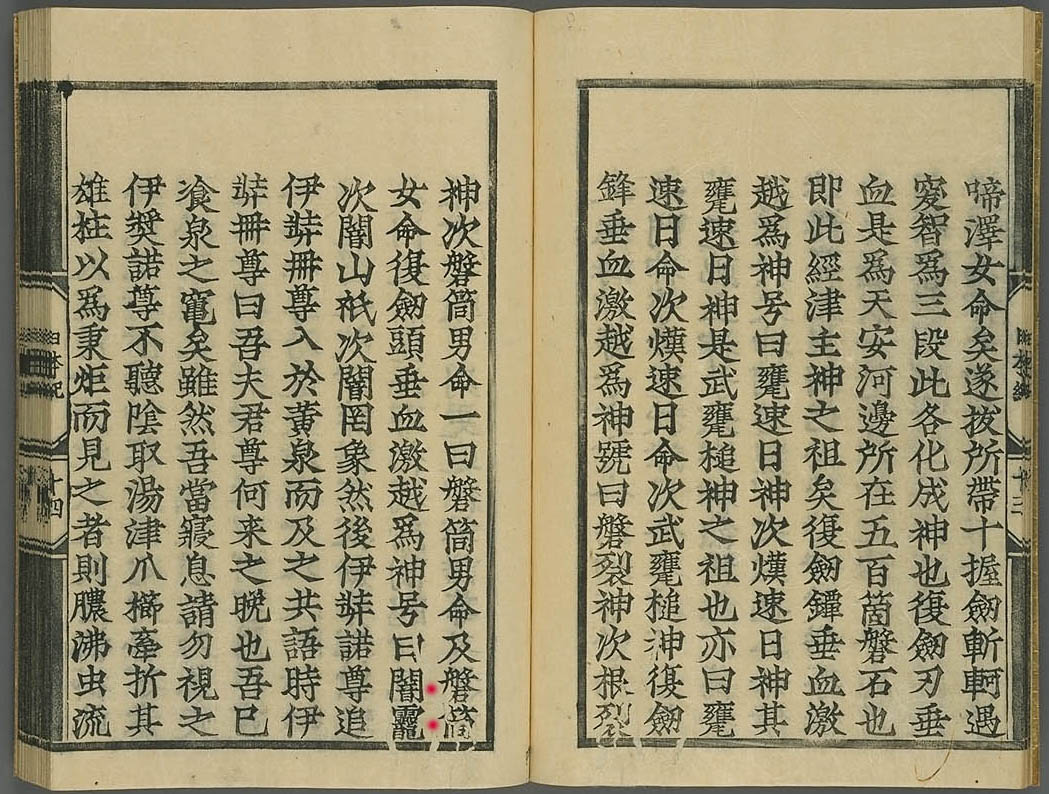 啼澤女命矣遂拔所帶十握劒斬軻遇
突智爲三段此各化成神也復劒刃垂
血是爲天安河邊所在五百箇磐石也
即此經津主神之祖矣復劒鐔垂血激
越爲神号曰甕速日神次熯速日神其
甕速日神是武甕槌神之祖也亦曰甕
速日命次熯速日命次武甕槌神復劒
鋒垂血激越爲神號曰磐裂神次根裂
十三
神次磐筒男命一曰磐筒男命及磐筒
女命復劒頭垂血激越爲神号曰闇龗
次闇山祇次闇罔象然後伊弉諾尊追
伊弉冊尊入於黄泉而及之共語時伊
弉冊尊曰吾夫君尊何来之晩也吾已
飡泉之竃矣雖然吾當寢息請勿視之
伊奘諾尊不聽陰取湯津爪櫛牽折其
雄柱以爲秉炬而見之者則膿沸虫流
日本紀
十四